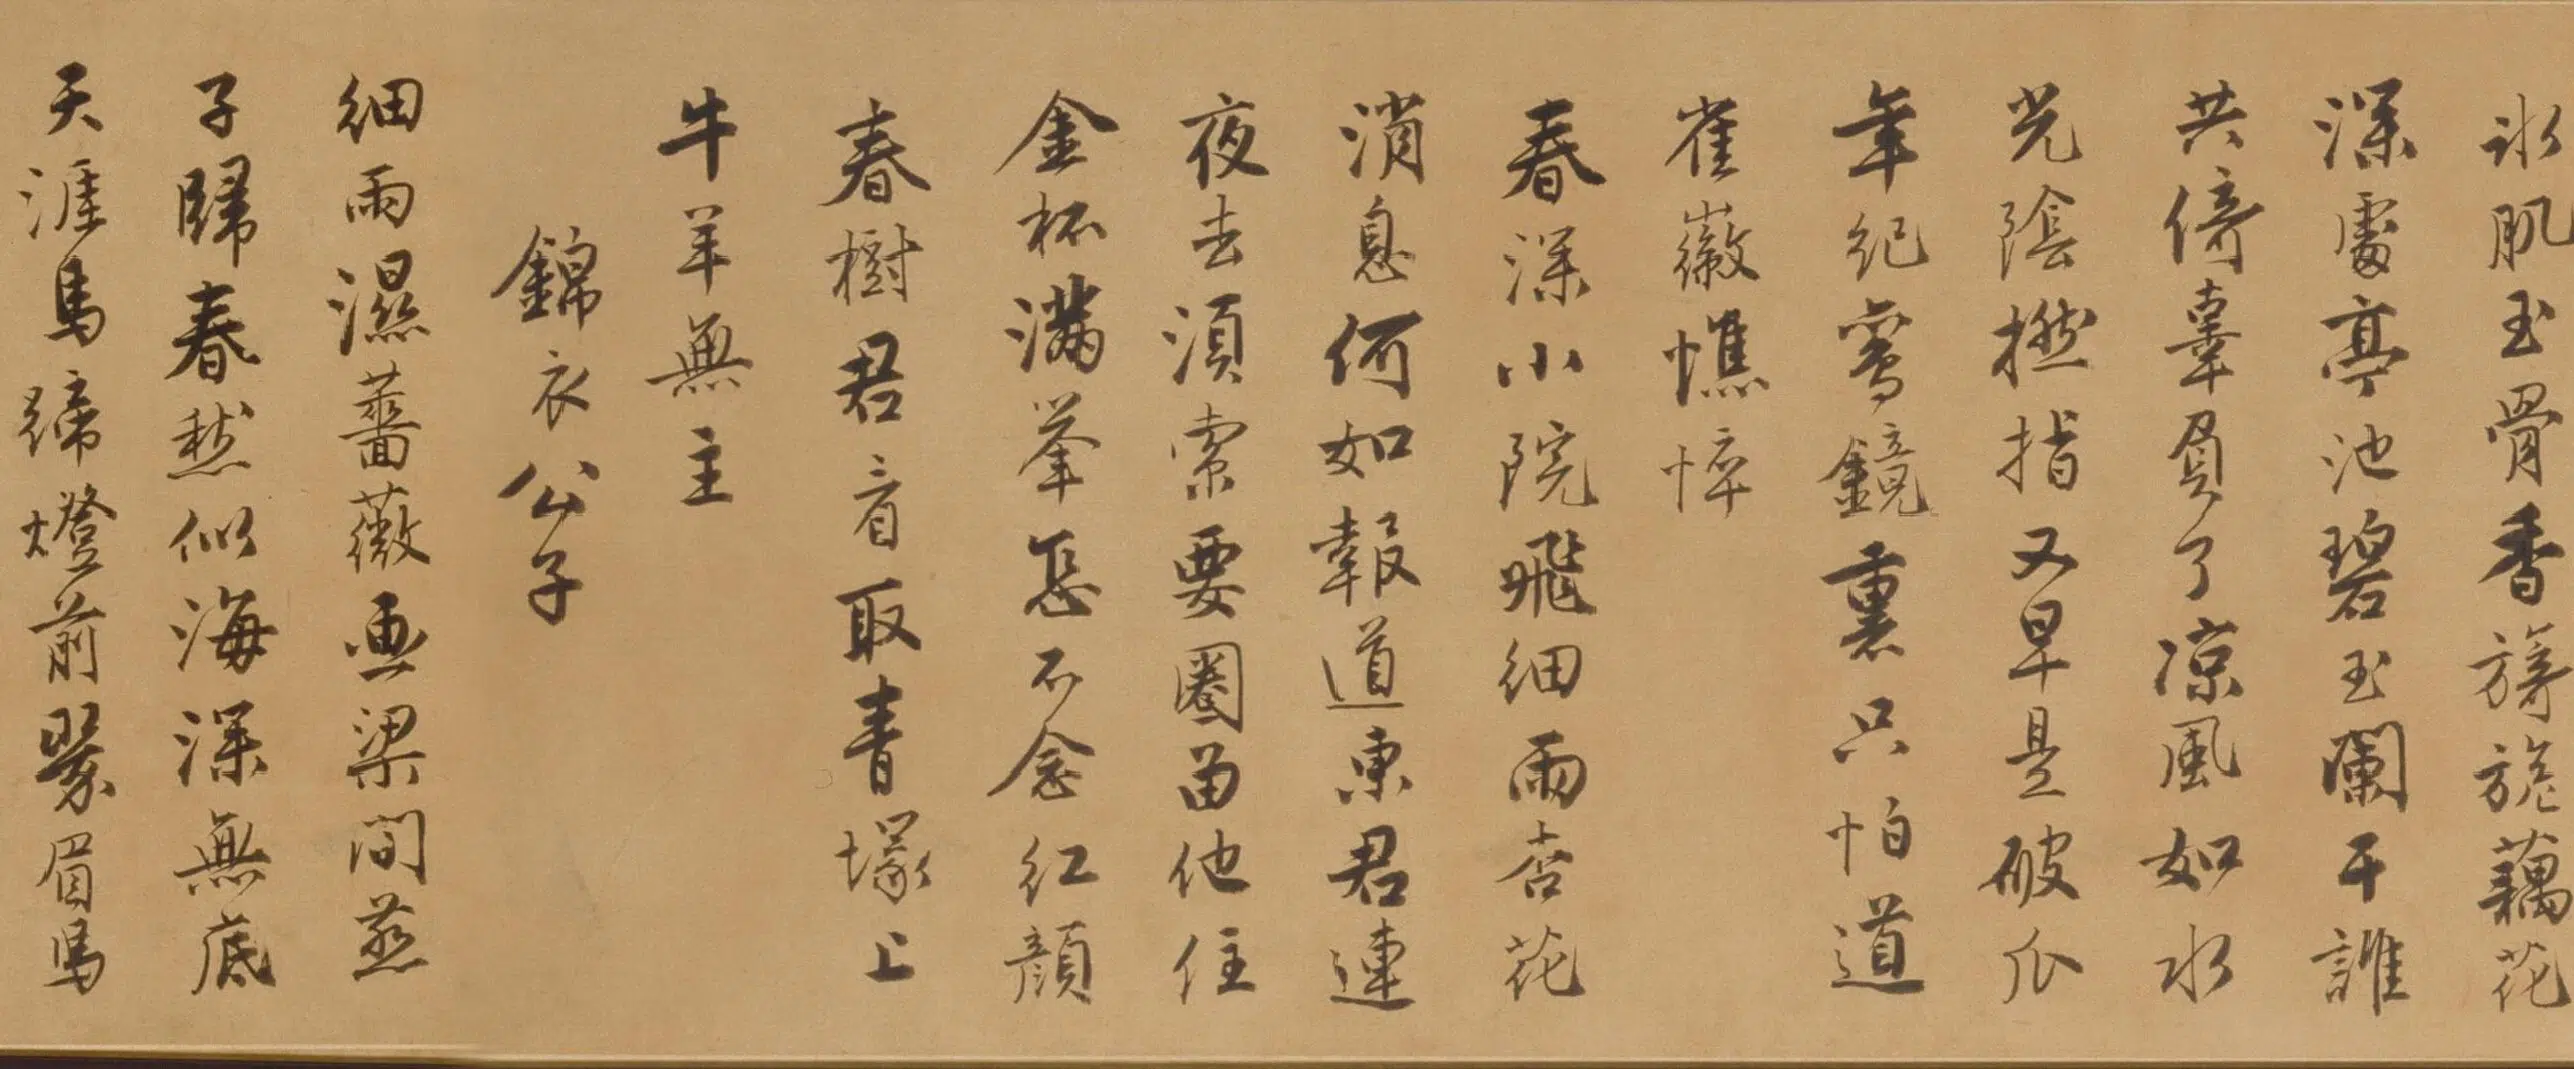 冰肌玉骨香旖旎藕花
深處亭池碧玉闌干誰
共倚辜負了涼風如水
光陰撚指又早是破瓜
年紀鸞鏡裏只怕道
崔徽憔悴
春深小院飛細雨杏花
消息何如報道東君連
夜去須索要圈留他住
金杯滿挙怎不念紅顔
春樹君看取青塚上
牛羊無主
錦衣公子
細雨濕薔薇画梁間燕
子歸春愁似海深無底
天涯馬蹄燈前翠眉馬